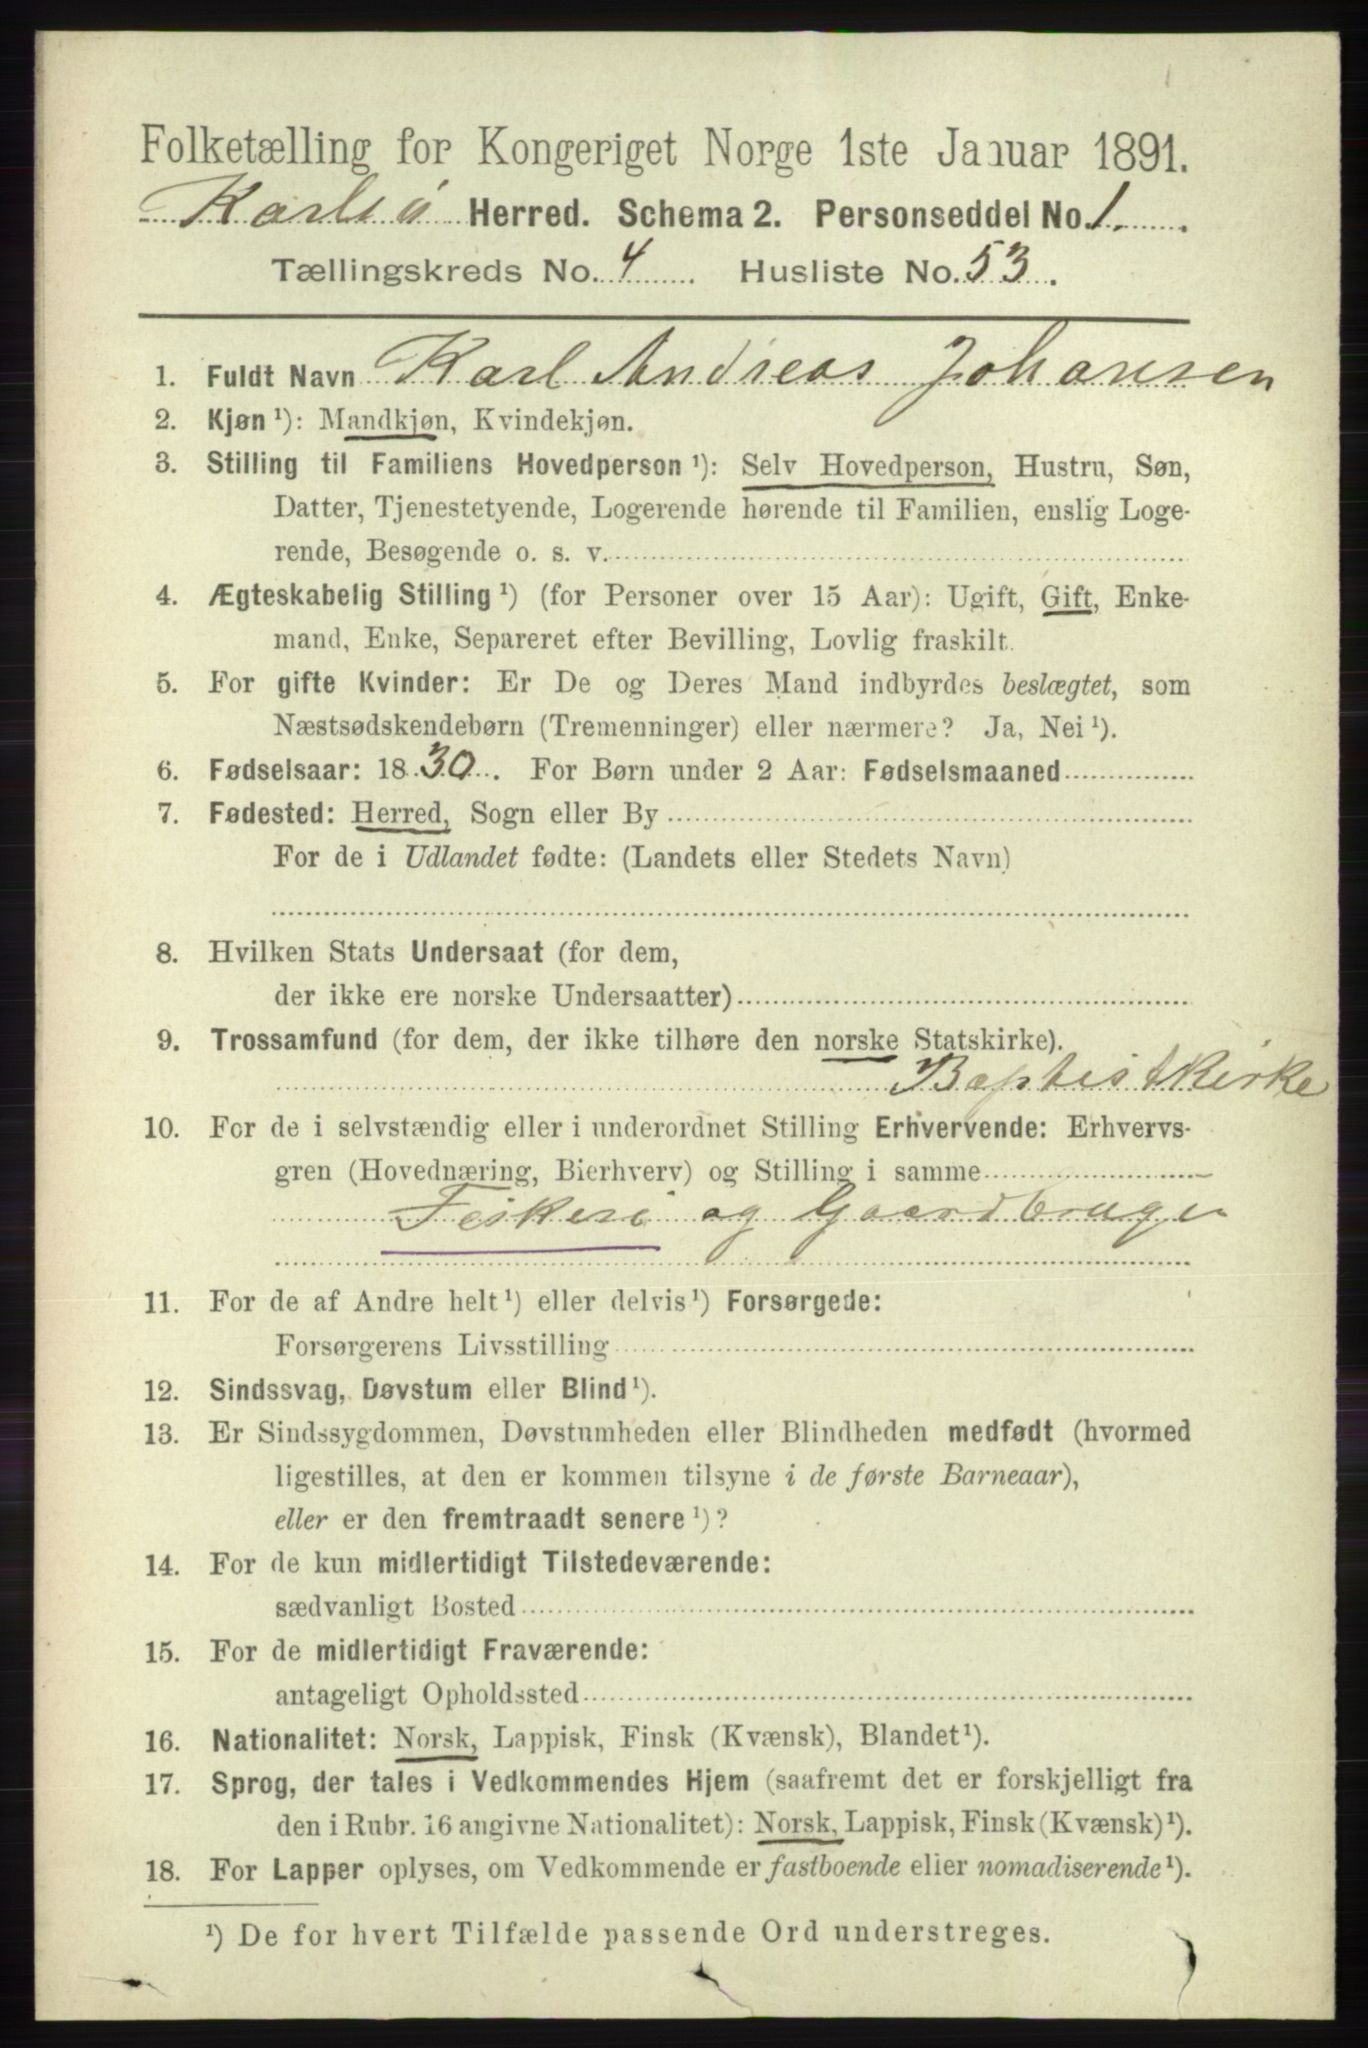 Folketælling for Kongeriget Norge 1ste Januar 1891.
Karlsø Herred. Schema 2. Personseddel No. 1.
Tællingskreds No. 4 Husliste No. 53.
1. Fuldt Navn Karl Andreas Johansen
2. Kjøn ¹): Mandkjøn, Kvindekjøn.
3. Stilling til Familiens Hovedperson ¹): Selv Hovedperson, Hustru, Søn,
Datter, Tjenestetyende, Logerende hørende til Familien, enslig Loge-
rende, Besøgende o. s. v.
4. Ægteskabelig Stilling ¹) (for Personer over 15 Aar): Ugift, Gift, Enke-
mand, Enke, Separeret efter Bevilling, Lovlig fraskilt.
5. For gifte Kvinder: Er De og Deres Mand indbyrdes beslægtet, som
Næstsødskendebørn (Tremenninger) eller nærmere? Ja, Nei ¹).
6. Fødselsaar: 1830. For Børn under 2 Aar: Fødselsmaaned
7. Fødested: Herred, Sogn eller By
For de i Udlandet fødte: (Landets eller Stedets Navn)
8. Hvilken Stats Undersaat (for dem,
der ikke ere norske Undersaatter)
9. Trossamfund (for dem, der ikke tilhøre den norske Statskirke).
Baptistkirke
10. For de i selvstændig eller i underordnet Stilling Erhvervende: Erhvervs-
gren (Hovednæring, Bierhverv) og Stilling i samme
Fiskeri og Gaardbruger
11. For de af Andre helt ¹) eller delvis ¹) Forsørgede:
Forsørgerens Livsstilling
12. Sindssvag, Døvstum eller Blind ¹).
13. Er Sindssygdommen, Døvstumheden eller Blindheden medfødt (hvormed
ligestilles, at den er kommen tilsyne i de første Barneaar),
eller er den fremtraadt senere ¹)?
14. For de kun midlertidigt Tilstedeværende:
sædvanligt Bosted
15. For de midlertidigt Fraværende:
antageligt Opholdssted
16. Nationalitet: Norsk, Lappisk, Finsk (Kvænsk), Blandet ¹).
17. Sprog, der tales i Vedkommendes Hjem (saafremt det er forskjelligt fra
den i Rubr. 16 angivne Nationalitet): Norsk, Lappisk, Finsk (Kvænsk) ¹).
18. For Lapper oplyses, om Vedkommende er fastboende eller nomadiserende ¹).
¹) De for hvert Tilfælde passende Ord understreges.